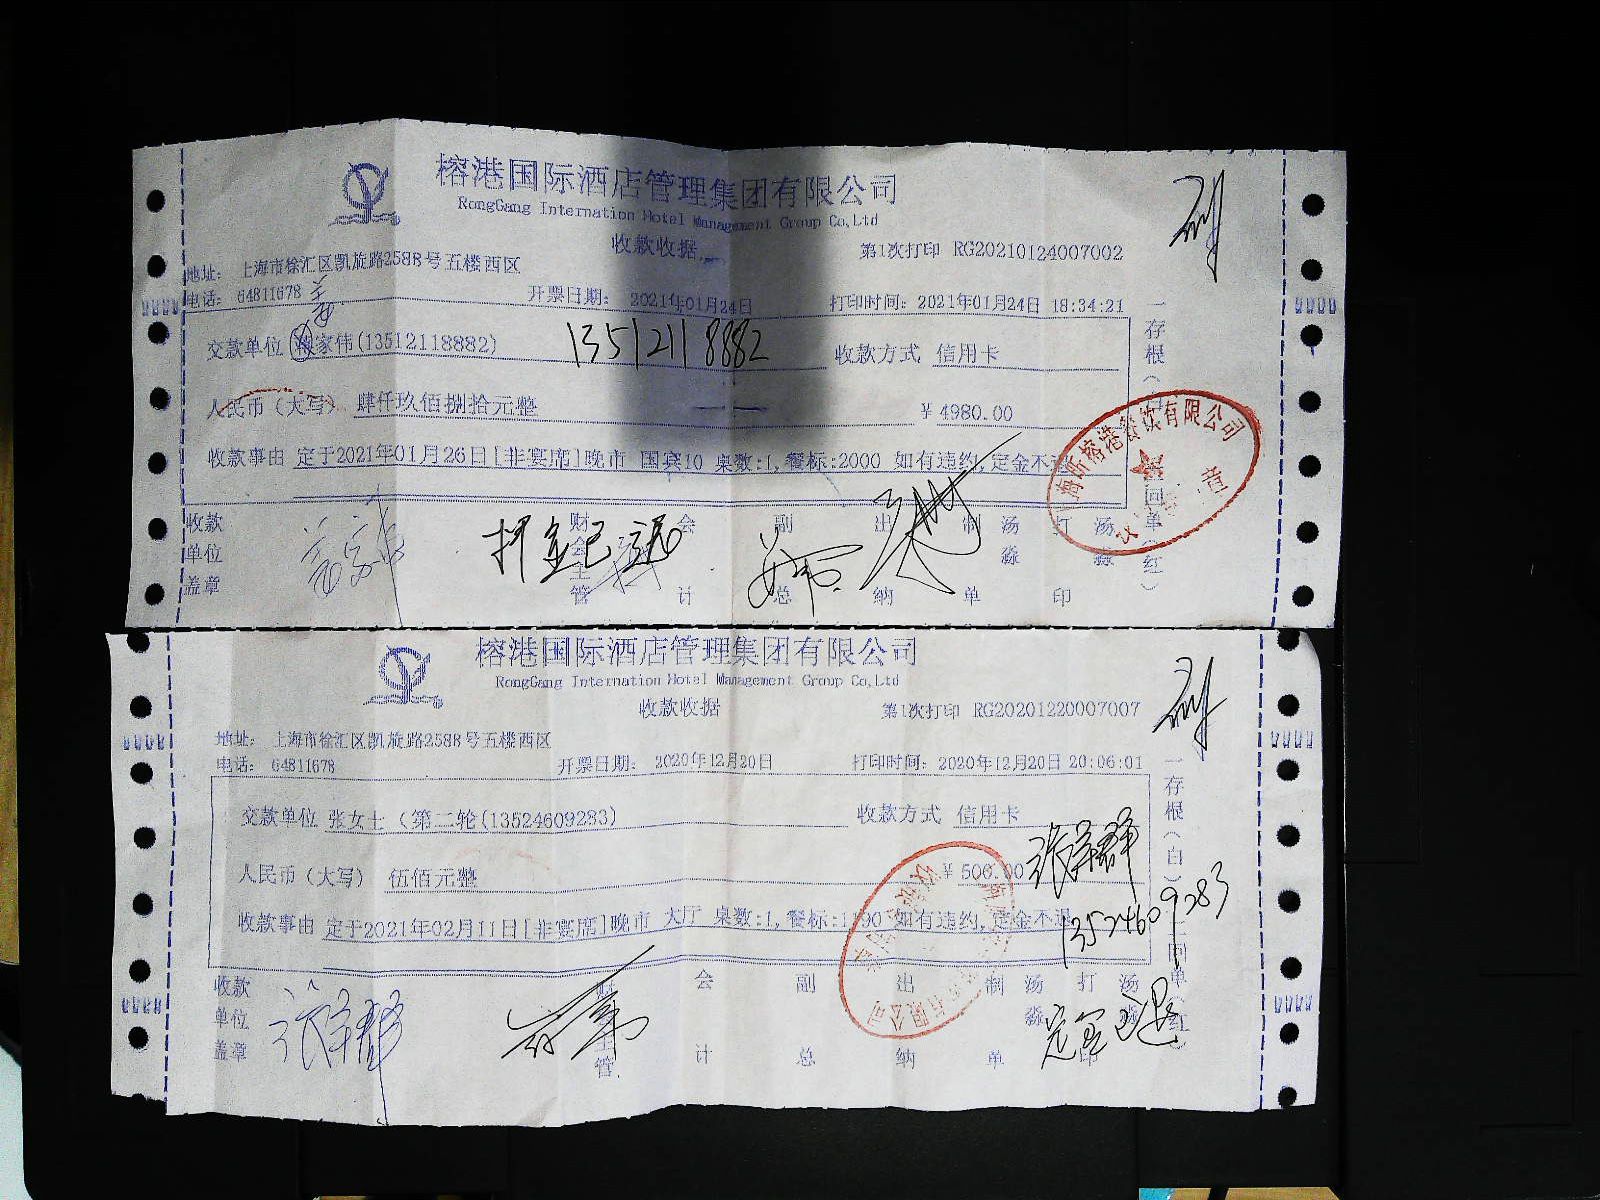 榕港国际酒店管理集团有限公司
RongGang Internation Hotel Management Group Co,Ltd
收款收据
第1次打印 RG20210124007002
地址: 上海市徐汇区凯旋路2588号五楼西区
电话: 64811678
开票日期: 2021年01月24日
打印时间: 2021年01月24日 18:34:21
姜
交款单位 家伟(13512118882)
13512118882
收款方式 信用卡
人民币(大写) 肆仟玖佰捌拾元整
¥ 4980.00
收款事由 定于2021年01月26日[非宴席]晚市 国宾10 桌数:1,餐标:2000 如有违约,定金不
一存根(
回单(红)
收款单位盖章
财会主管
会计
副总
出纳
制单
汤淼
打印
汤淼
押金已退
榕港餐饮有限公司
章
榕港国际酒店管理集团有限公司
RongGang Internation Hotel Management Group Co,Ltd
收款收据
第1次打印 RG20201220007007
地址: 上海市徐汇区凯旋路2588号五楼西区
电话: 64811678
开票日期: 2020年12月20日
打印时间: 2020年12月20日 20:06:01
交款单位 张女士 (第二轮(13524609283)
收款方式 信用卡
人民币(大写) 伍佰元整
¥ 500.00
13524609283
收款事由 定于2021年02月11日[非宴席]晚市 大厅 桌数:1,餐标:1190 如有违约,定金不退
一存根(白)
二回单(红)
收款单位盖章
主管
会计
副总
出纳
制单
汤淼
打印
汤淼
定金已退
有限公司